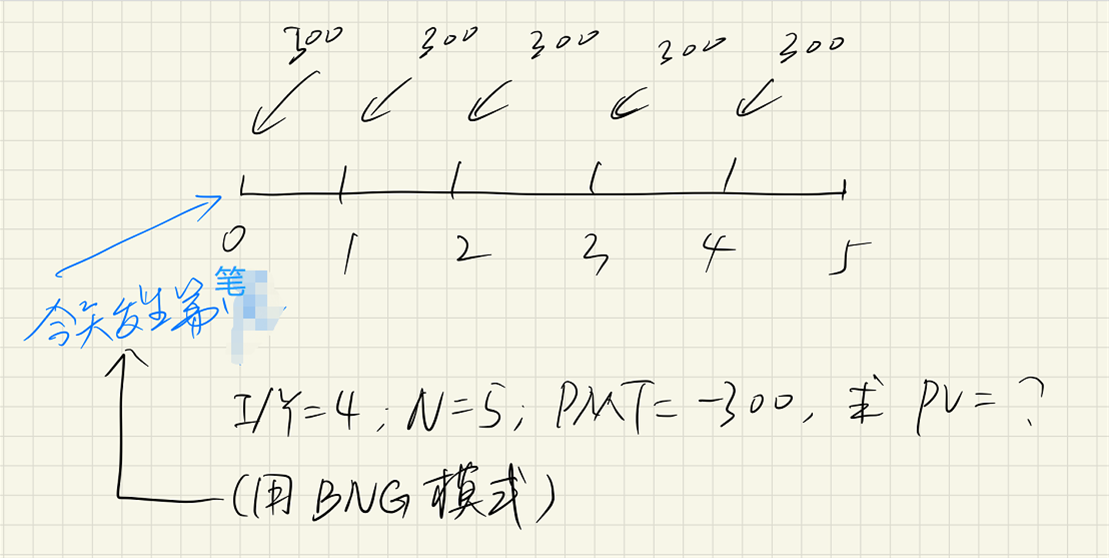 300 300 300 300 300
0 1 2 3 4 5
今天发生第1笔
I/Y=4; N=5; PMT=-300, 求 PV=?
(用BNG模式)